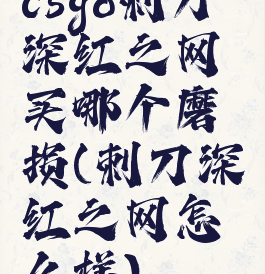 csgo刺刀
深红之网
买哪个磨
损(刺刀深
红之网怎
么样)